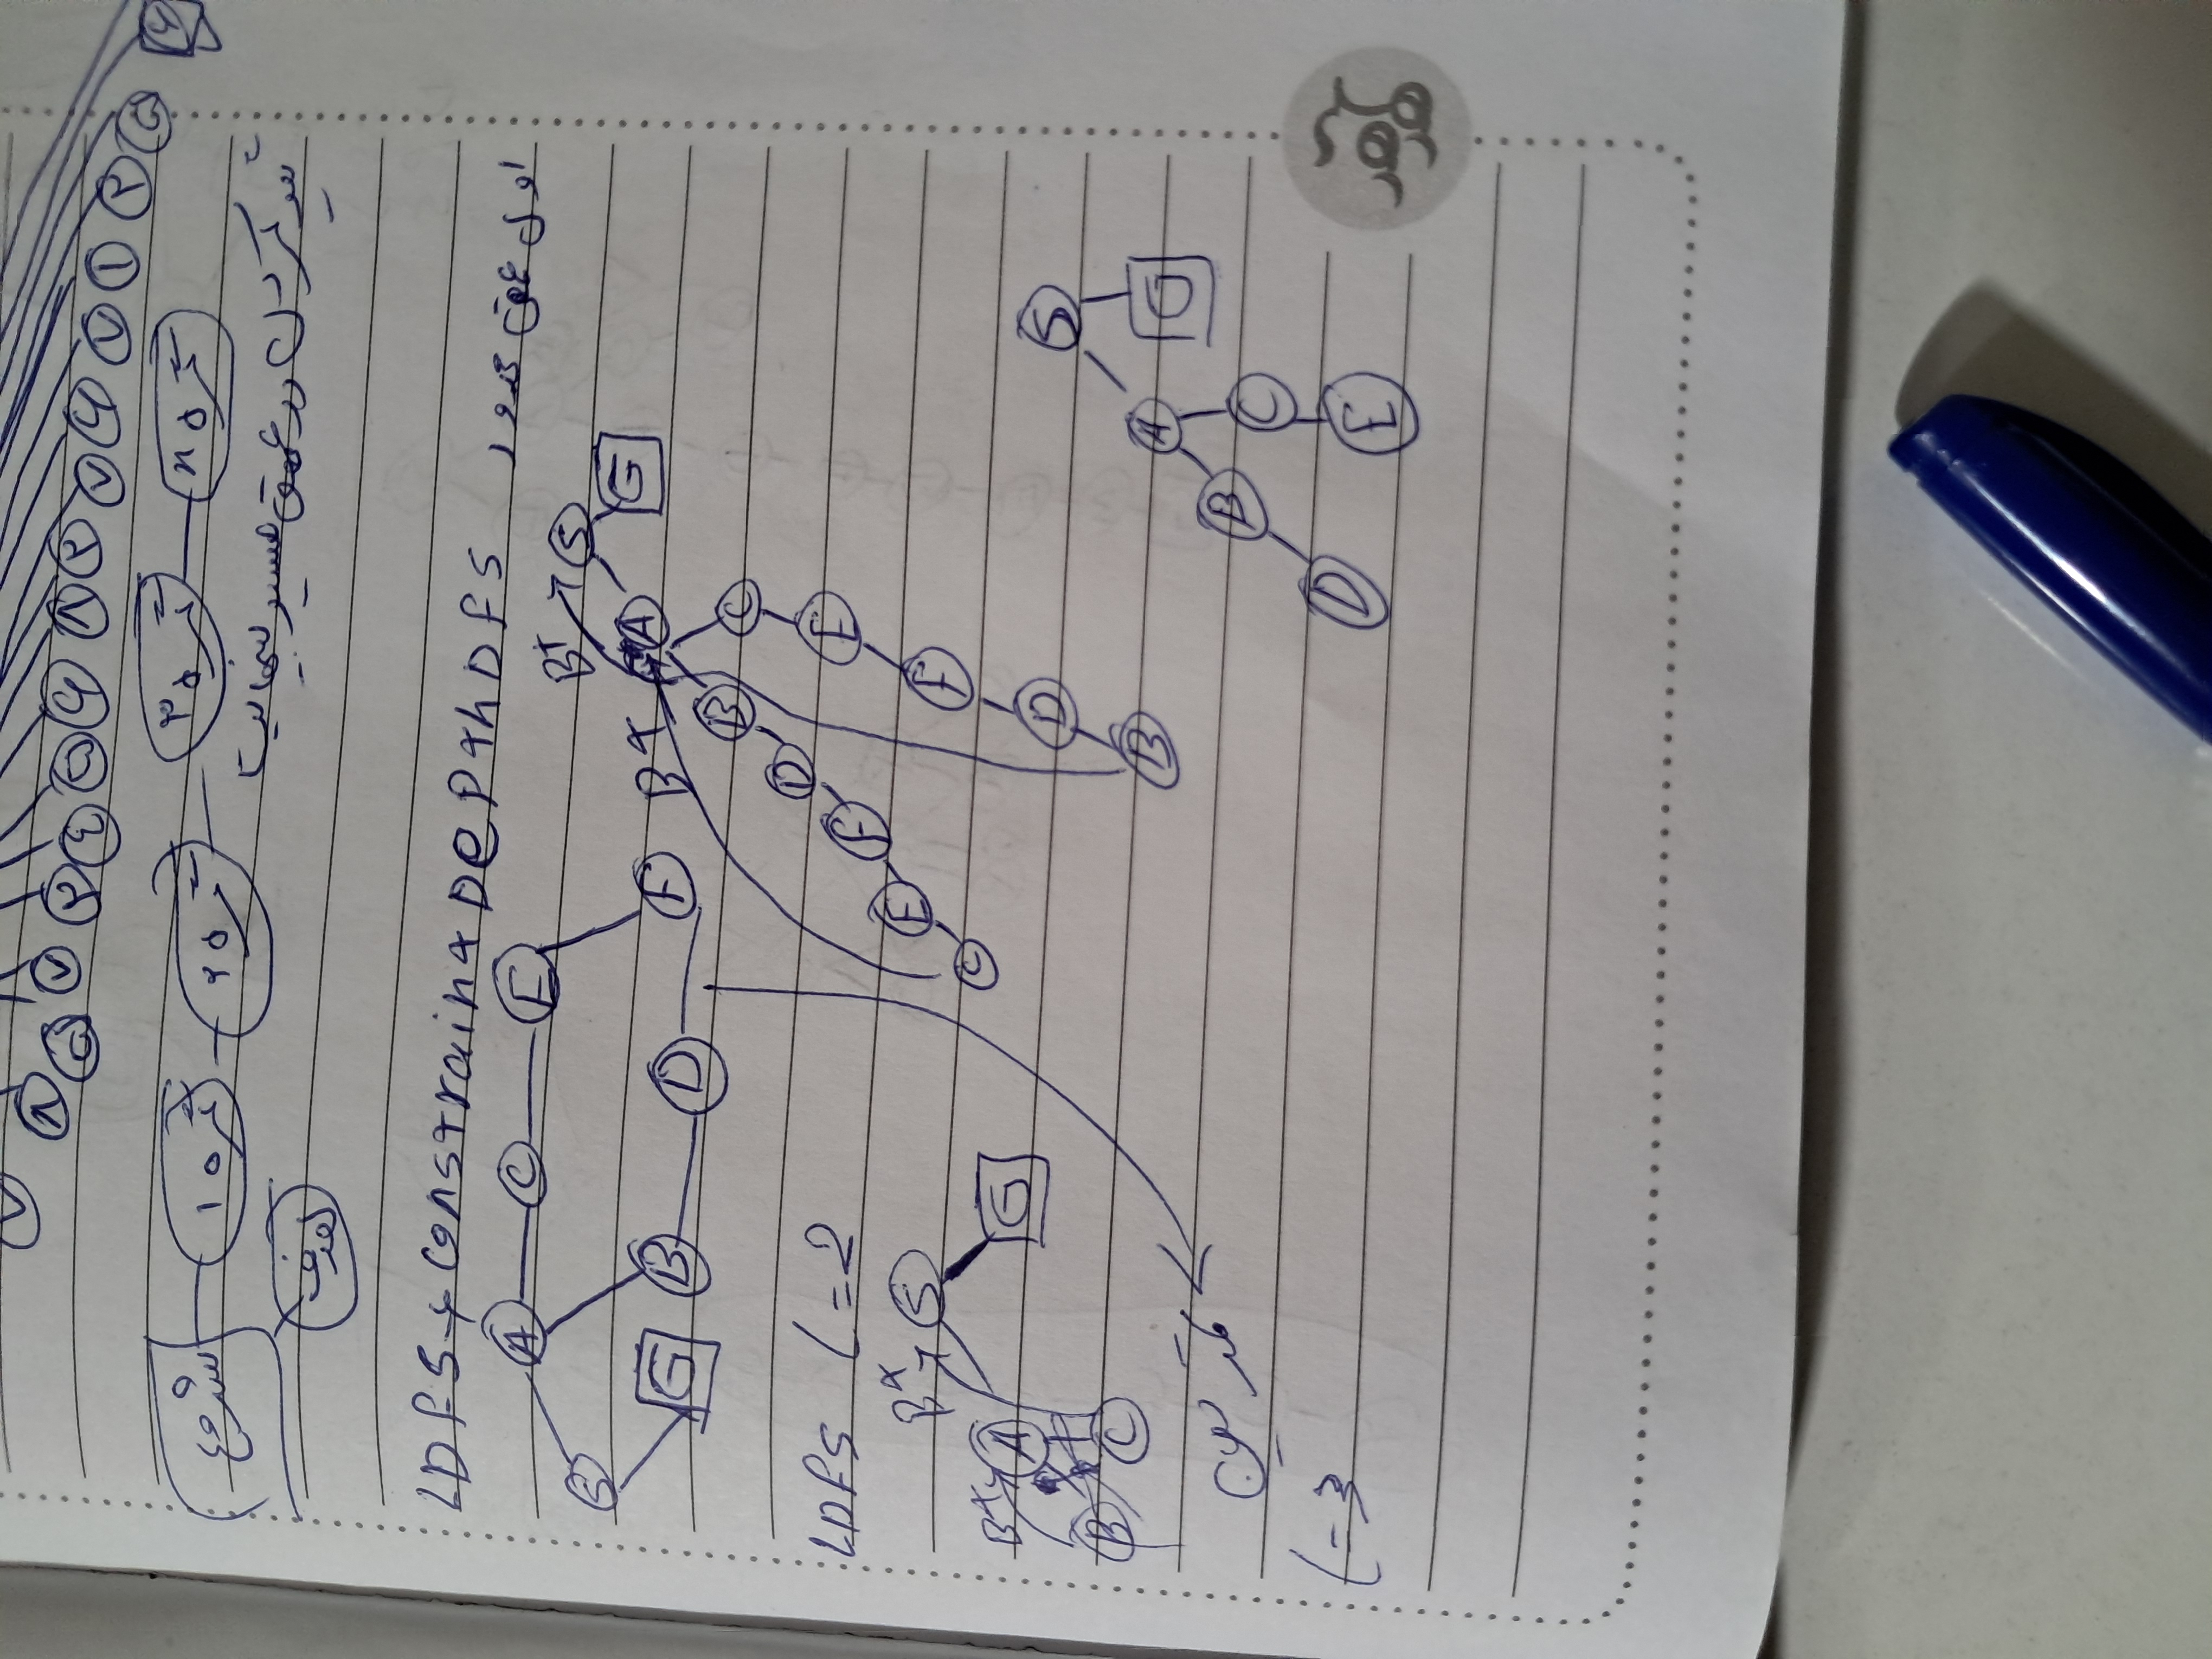 ۷ ۸ ۵ ۷ ۲ ۴ ۵ ۶ ۸ ۲ ۷ ۶ ۷ ۱ ۲ ۵ ۶
شروع گره ۱ گره ۲ گره ۳ گره n
هدف
گیر کردن در عمق مسیر بینهایت
LDFS → constraint Depth DFS اول عمق محدود
A C E
S G B D F
B* S G
B* A
B C
D E
F F
E D
C B
LDFS L=2
B* S
B* A G
B C
تمرین
L=3
S
A G
B C
D E
گوهر